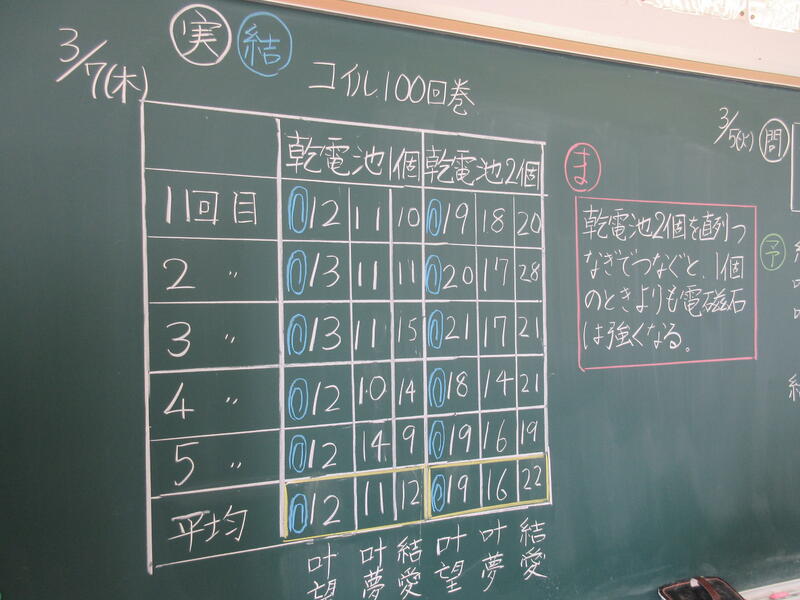 3/7(木) 実 結
コイル100回巻
乾電池1個 乾電池2個
1回目 0 12 11 10 0 19 18 20
2 〃 0 13 11 11 0 20 17 28
3 〃 0 13 11 15 0 21 17 21
4 〃 0 12 10 14 0 18 14 21
5 〃 0 12 14 9 0 19 16 19
平均 0 12 11 12 0 19 16 22
叶望 叶夢 結愛 叶望 叶夢 結愛
ま
乾電池2個を直列つ
なぎでつなぐと、1個
のときよりも電磁石
は強くなる。
3/5(火) 問
予